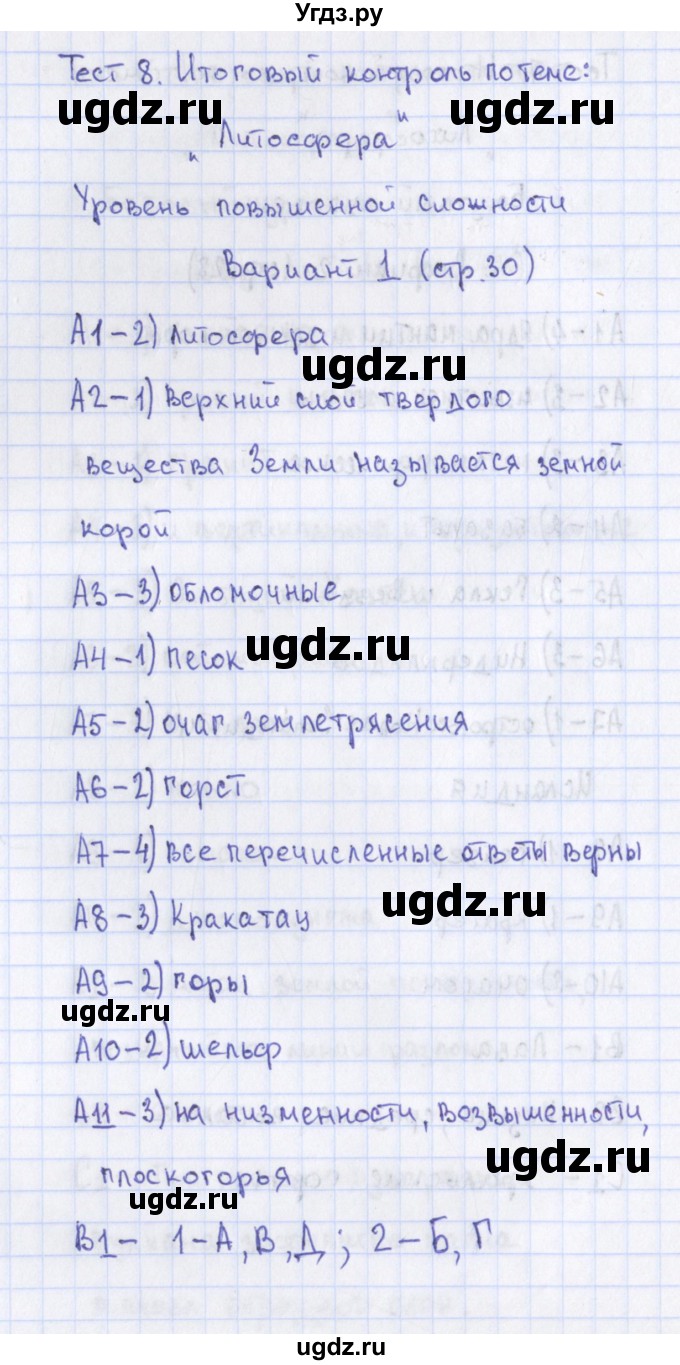 Угдз.ру
Тест 8. Итоговый контроль по теме:
ugdz.ru ugdz.ru
"Литосфера"
Уровень повышенной сложности
Вариант 1 (стр.30)
А1-2) литосфера
ugdz.ru
А2-1) Верхний слой твердого
вещества Земли называется земной
корой
А3-3) обломочные
ugdz.ru
А4-1) песок
А5-2) очаг землетрясения
А6-2) горст
А7-4) все перечисленные ответы верны
ugdz.ru
А8-3) Кракатау
А9-2) горы
ugdz.ru
А10-2) шельф
А11-3) на низменности, возвышенности,
ugdz.ru
плоскогорья
ugdz.ru
В1- 1-А,В,Д; 2-Б,Г
ugdz.ru